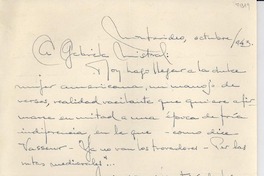 Montevideo, octubre/943.
A Gabriela Mistral:
Hoy hago llegar a la dulce
mujer americana, un manojo de
versos, realidad vacilante que quiere afir
marse en mitad a una época de fría
indiferencia en la que - como dice
Vasseur - "Ya no van los trovadores - Por las
rutas medievales"...